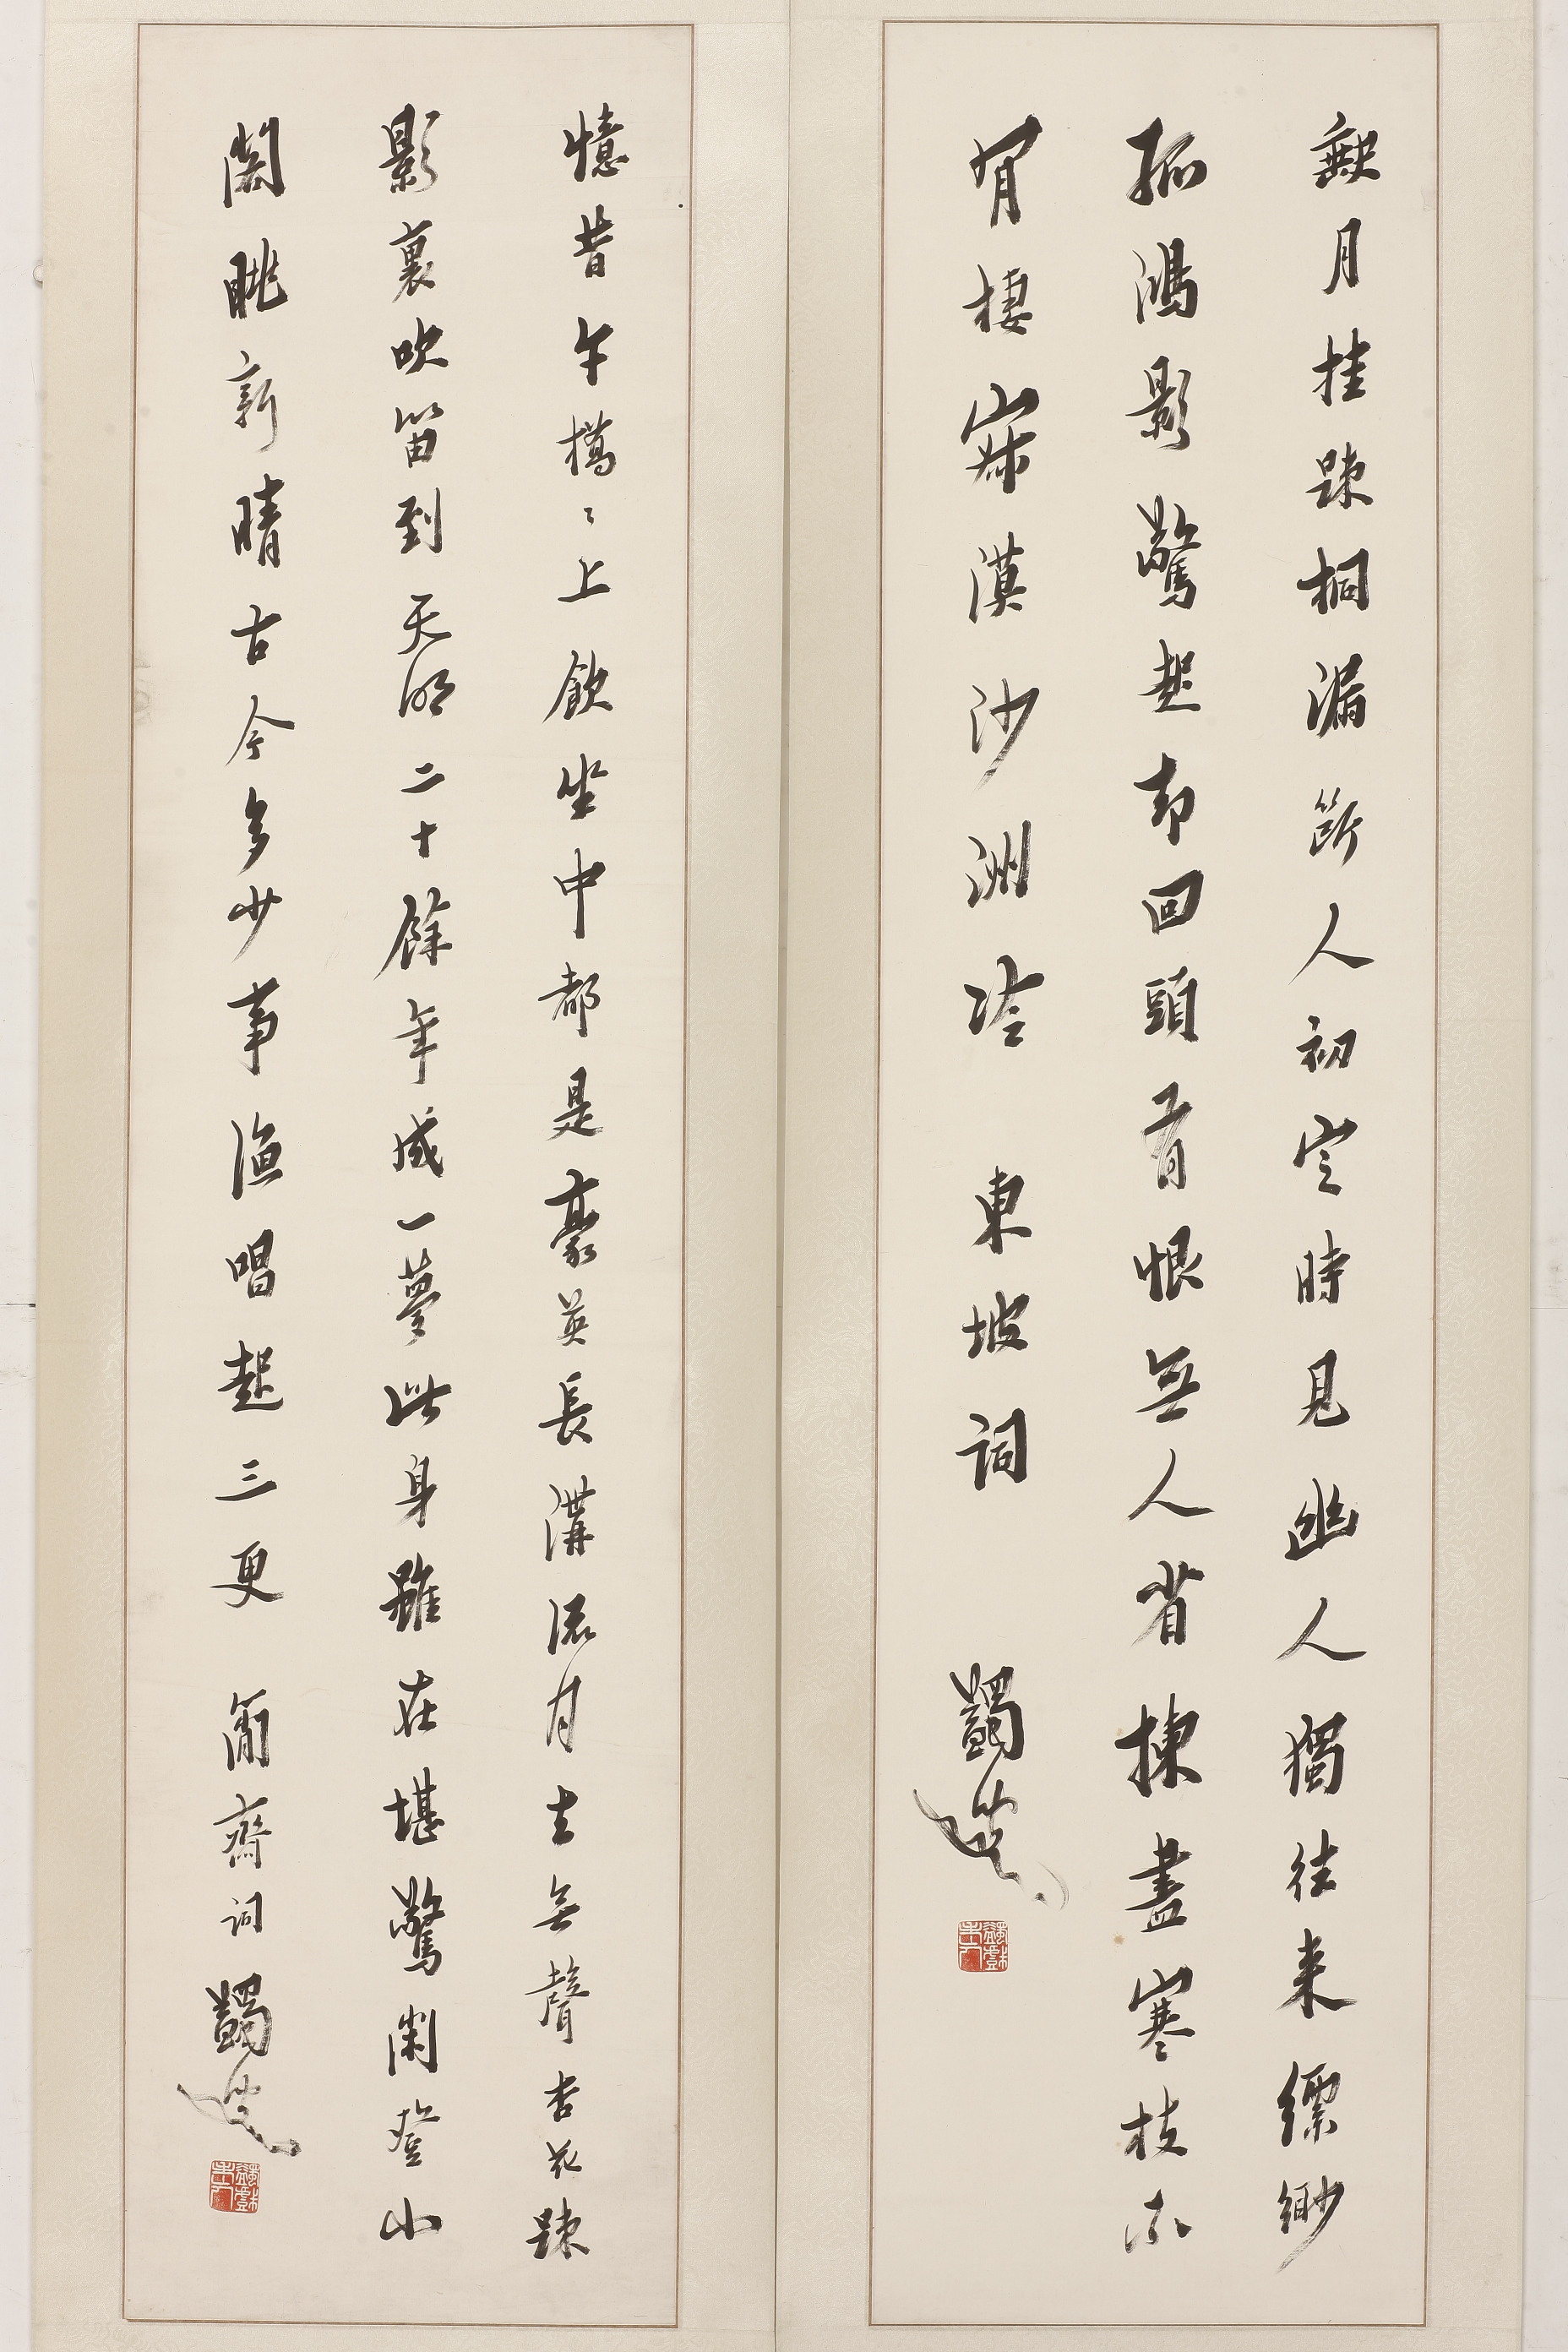 缺月挂疎桐漏断人初定時見幽人獨往来縹緲
孤鴻影驚起却回頭有恨無人省揀盡寒枝不
肎棲寂漠沙洲冷 東坡詞
蠲叟
憶昔午橋〻上飲坐中都是豪英長溝流月去無聲杏花疎
影裏吹笛到天明二十餘年成一夢此身雖在堪驚閑登小
閣眺新晴古今多少事漁唱起三更 簡齋詞 蠲叟